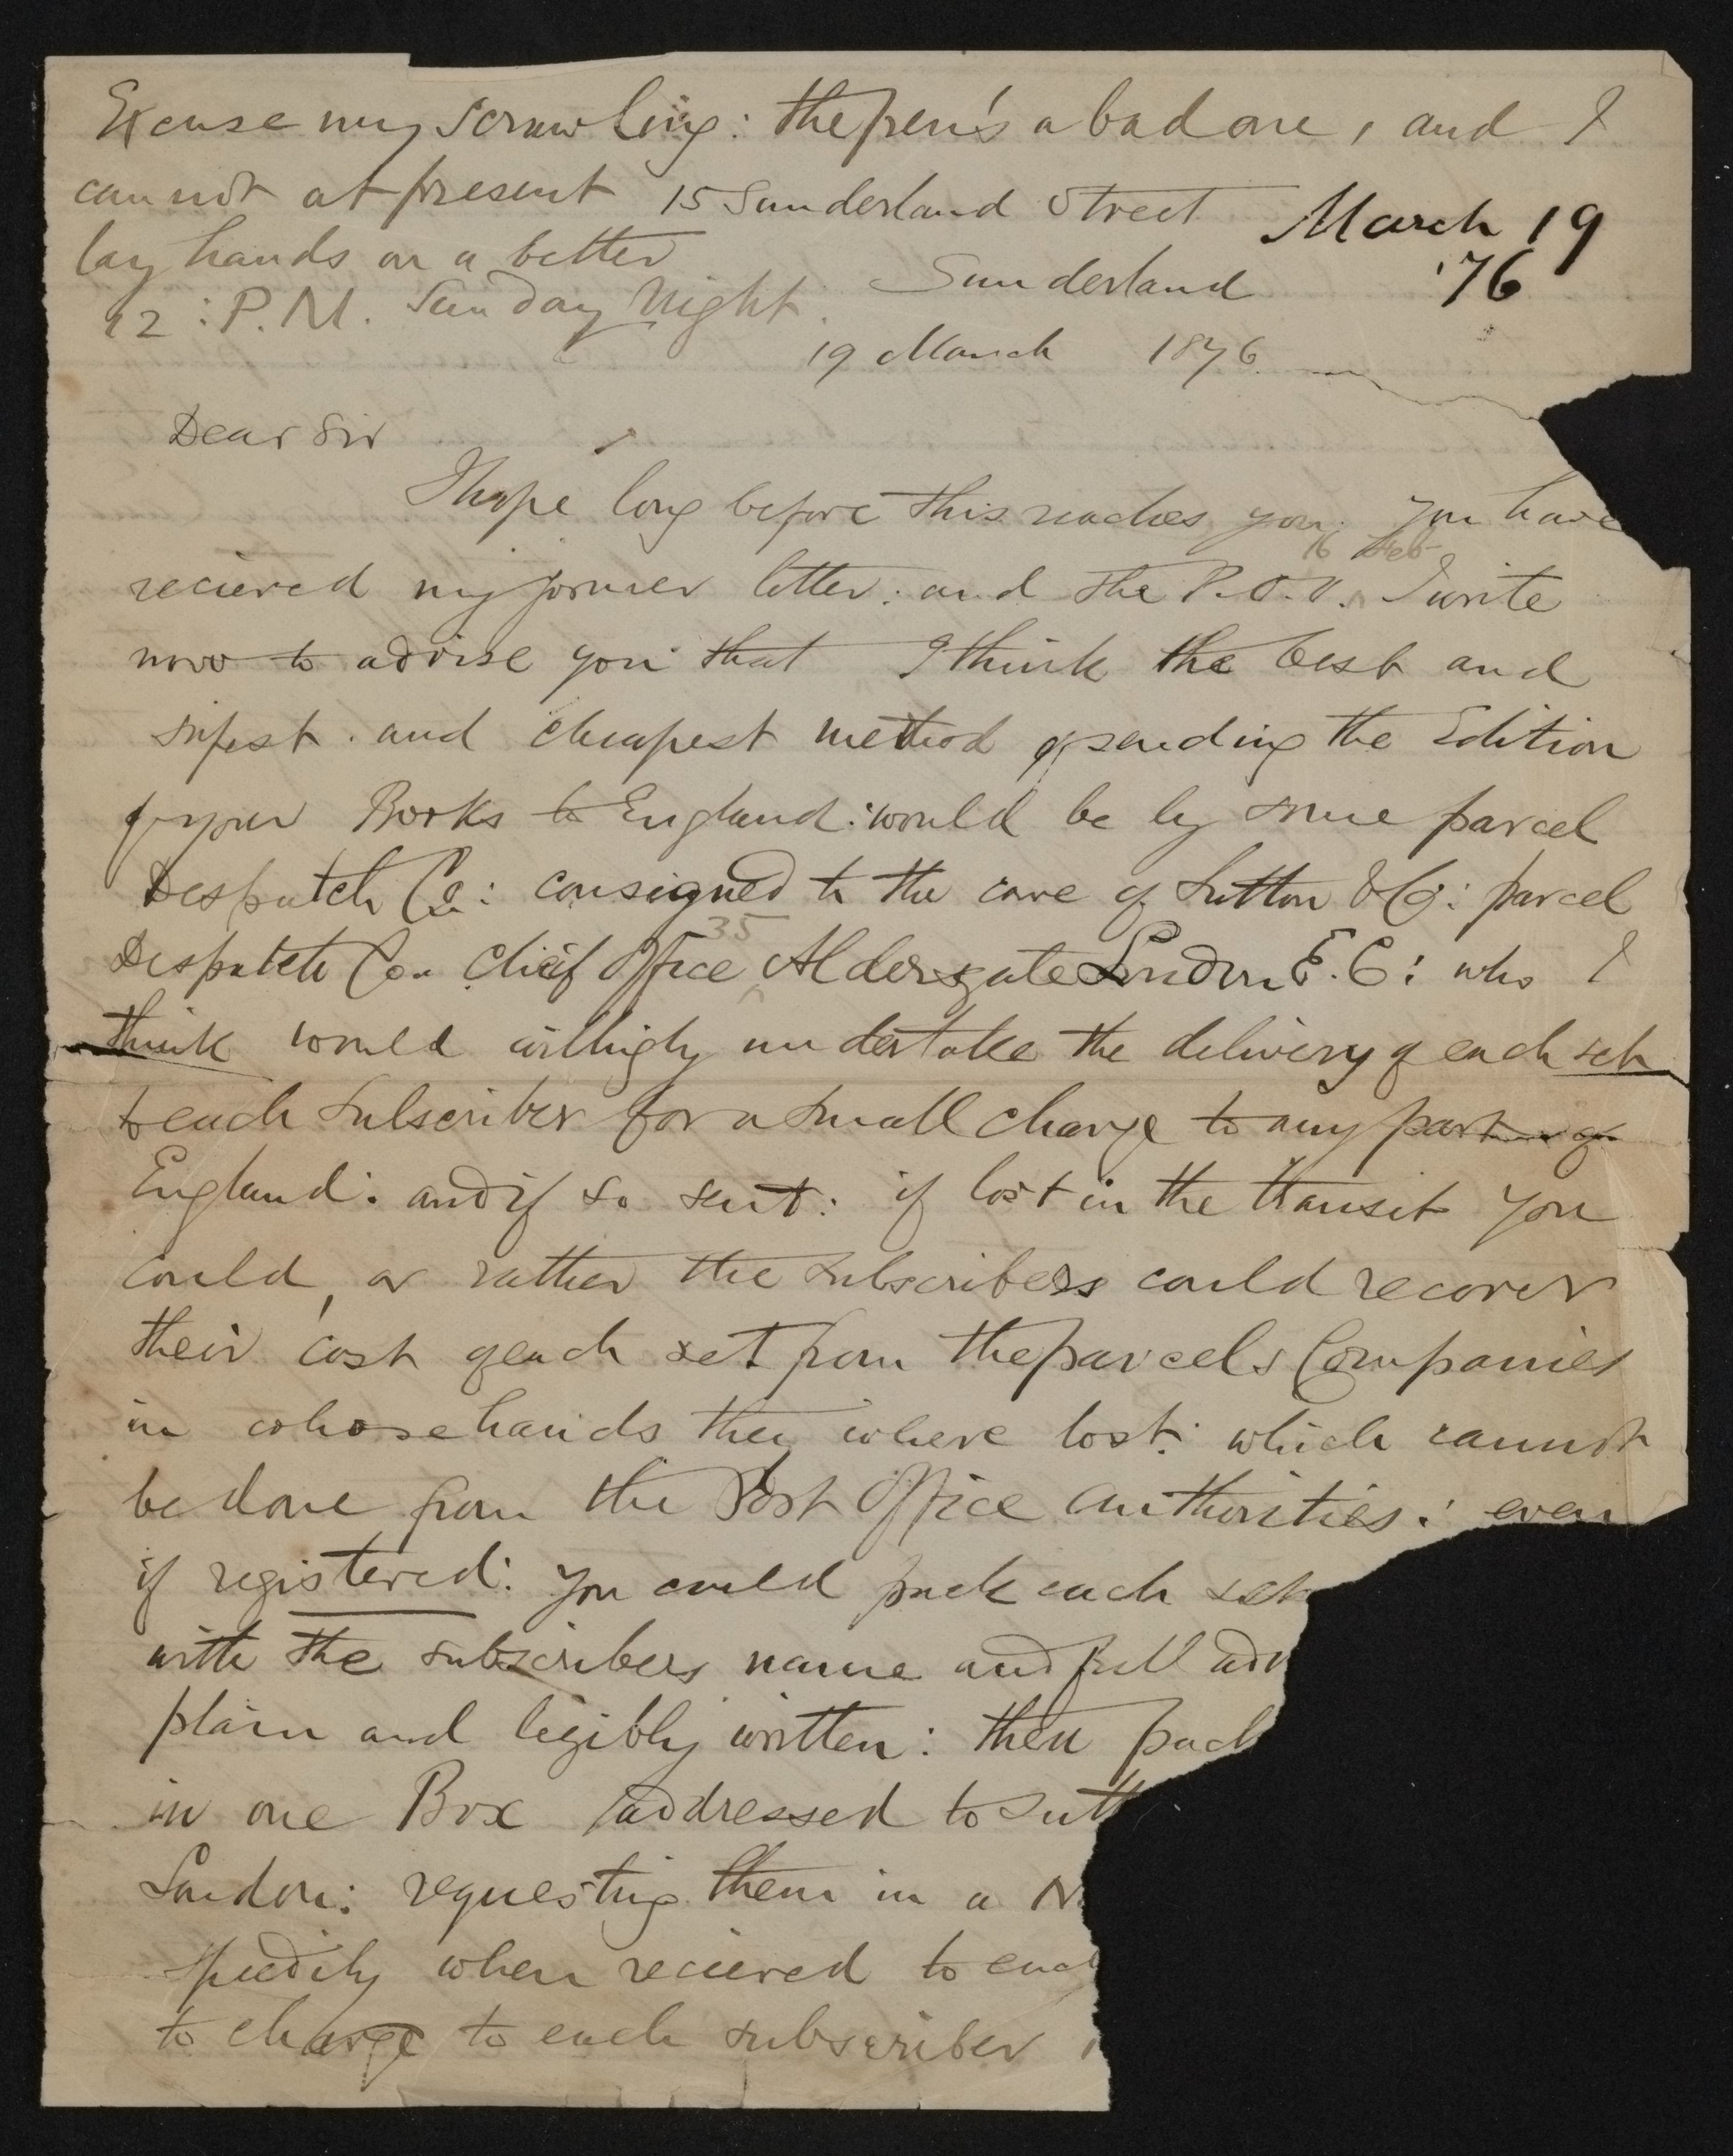 Excuse my scrawling: the pen's a bad one, and I
cannot at present
lay hands on a better
12: P.M. Sunday Night.
15 Sunderland Street
Sunderland
19 March 1876
March 19
'76
Dear Sir
I hope long before this reaches you. you have
16 Feb
recieved my former letter: and the P.O.O. I write
now to advise you that I think the best and
safest. and cheapest method of sending the Edition
of your Books to England: would be by some parcel
Despatch Co: consigned to the care of Sutton & Co: parcel
35
Despatch Co. Chief Office Aldersgate London E.C: who I
think would willingly undertake the delivery of each set
to each subscriber for a small charge to any part of
England: and if so sent: if lost in the transit you
could, or rather the subscribers could recover
their cost of each set from the parcels Companies
in whose hands they where lost: which cannot
be done from the Post Office authorities: even
if registered: you could pack each set
with the subscribers name and full add
plain and legibly written: then pack
in one Box addressed to Sutt
London: requesting them in a N
speedily when recieved to eac
to charge to each subscriber